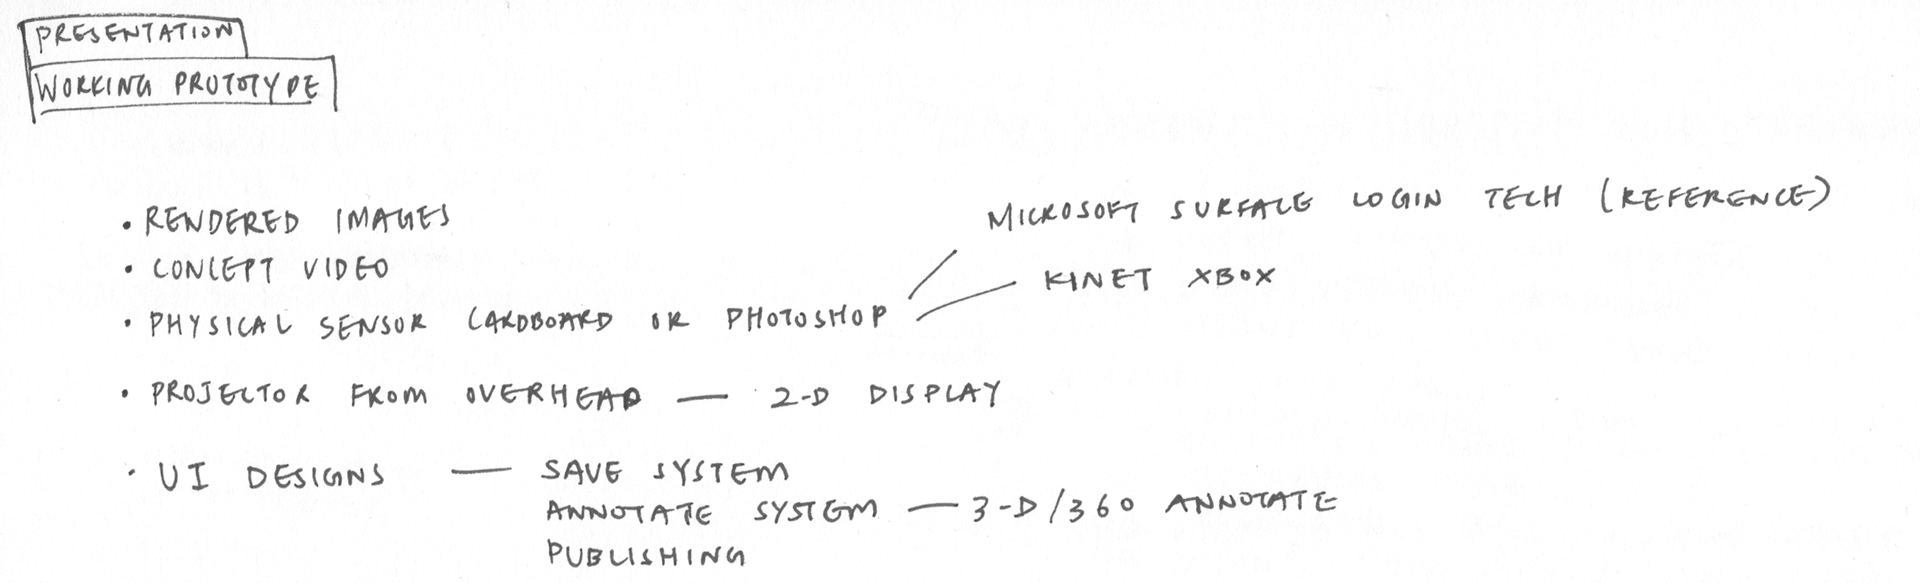 PRESENTATION
WORKING PROTOTYPE
• RENDERED IMAGES
• CONCEPT VIDEO
• PHYSICAL SENSOR CARDBOARD OR PHOTOSHOP
MICROSOFT SURFACE LOGIN TECH (REFERENCE)
KINET XBOX
• PROJECTOR FROM OVERHEAD — 2-D DISPLAY
• UI DESIGNS — SAVE SYSTEM
ANNOTATE SYSTEM — 3-D/360 ANNOTATE
PUBLISHING